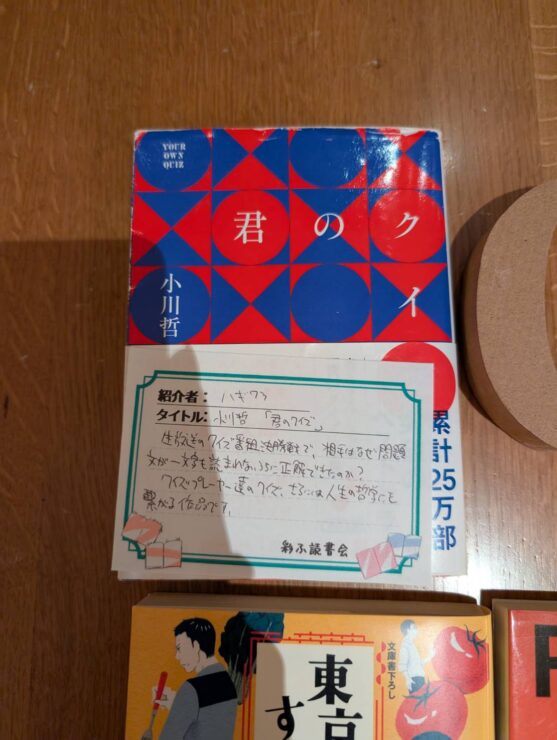 YOUR
OWN
QUIZ
君のク
イ
小川哲
累計
25万部
紹介者： ハキワラ
タイトル： 小川哲 「君のクイズ」
生放送のクイズ番組決勝戦で、相手はなぜ問題
文が一文字も読まれないうちに正解できたのか？
クイズプレーヤー達のクイズ、さらには人生の哲学にも
繋がる作品です。
彩ふ読書会
文庫書下ろし
東京
す